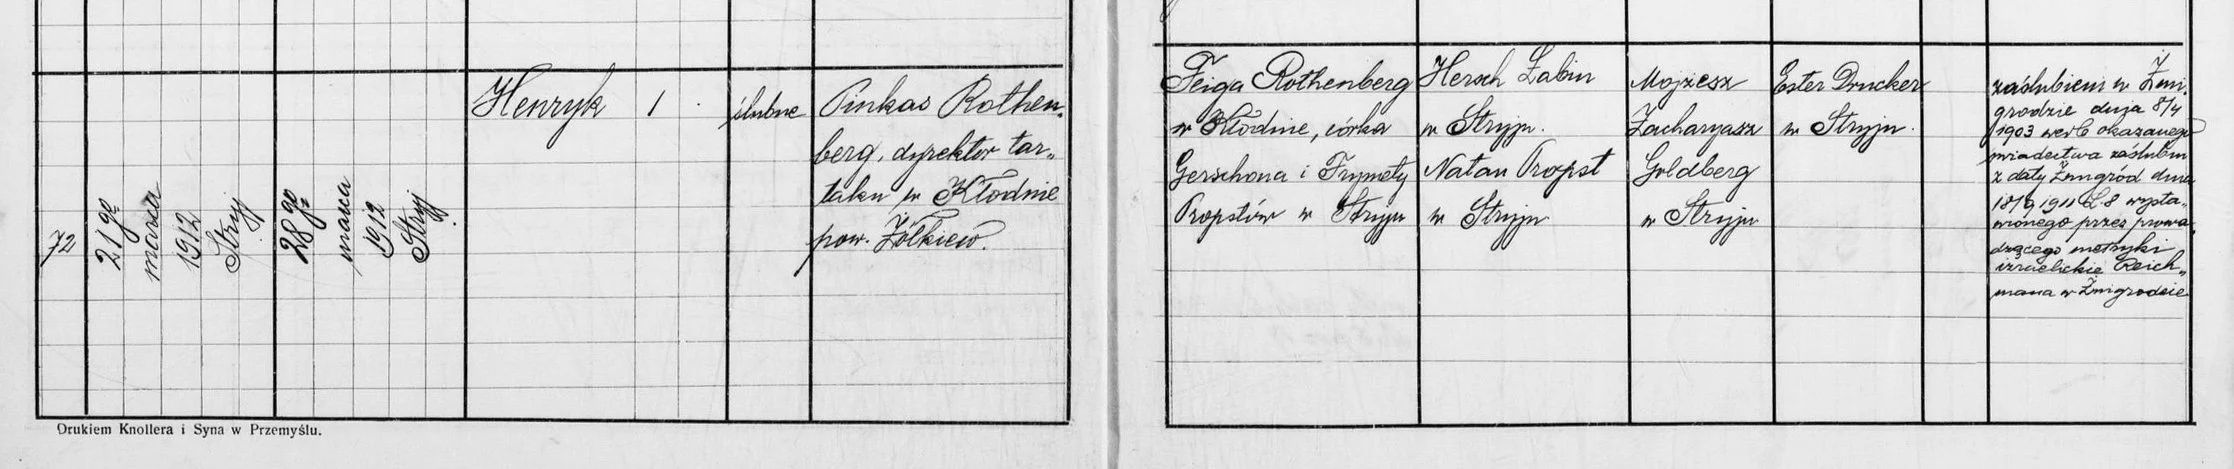 72
21go
marca
1912
Stryj
28go
marca
1912
Stryj
Henryk 1
ślubne
Pinkas Rothen„
berg, dyrektor tar„
taku w Kłodnie
pow. Żółkiew.
Feiga Rothenberg
w Kłodnie, córka
Gerschona i Frymety
Propstów w Stryju
Hersch Labin
w Stryju.
Natan Propst
w Stryju
Mojżesz
Zacharyasz
Goldberg
w Stryju
Ester Drucker
w Stryju.
zaślubieni w Żmi„
grodzie dnia 8/4
1903 wedł okazanego
świadectwa zaślubin
z daty Żmigród dnia
18/9 1911 L 8 wysta„
wionego przez prowa„
dzącego metryki
izraelickie Reich„
mana w Żmigrodzie
Drukiem Knollera i Syna w Przemyślu.